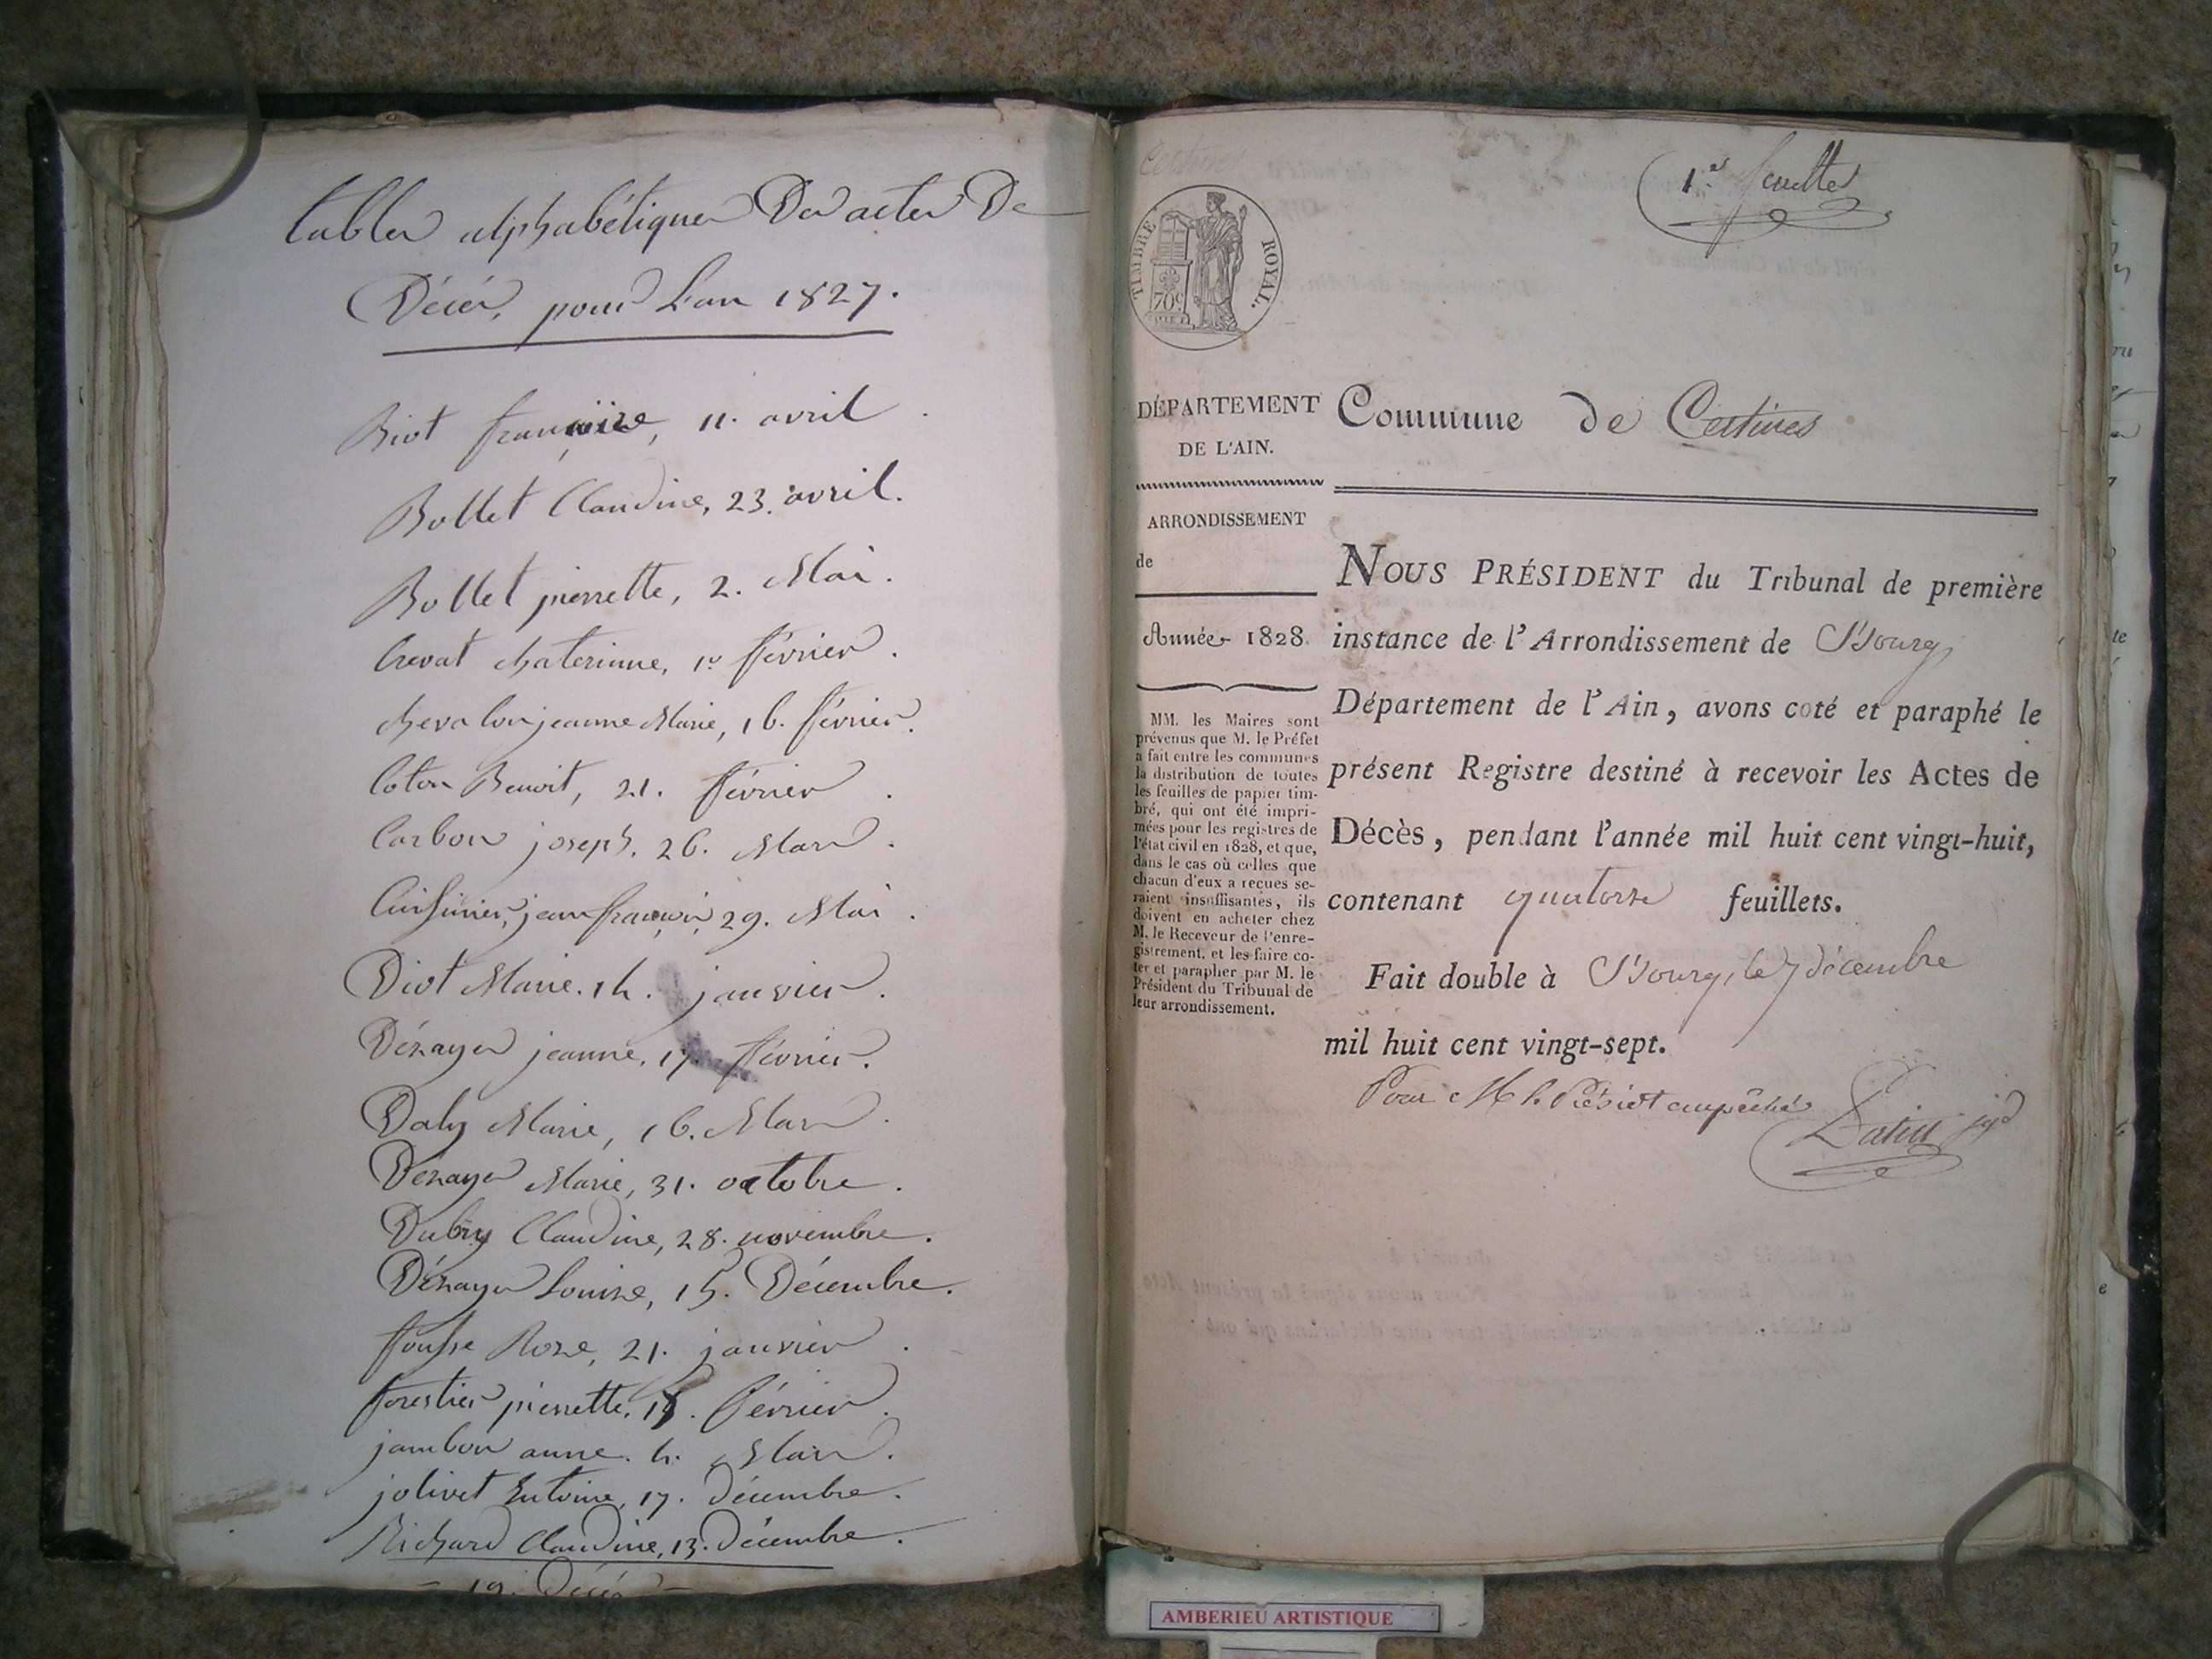 tables alphabétiques Des actes De
Décès, pour L'an 1827.
Biot françoise, 11. avril.
Bollet Claudine, 23. avril.
Bollet pierrette, 2. Mai.
Crevat chaterinne, 1er février.
chevalon jeanne Marie, 16. février.
Coton Benoit, 21. février.
Carbon joseph, 26. Mars.
Cuissinier, jean françois, 29. Mai.
Diot Marie. 14. janvier.
Dénayer jeanne, 17. février.
Daly Marie, 16. Mars.
Dénayer Marie, 31. octobre.
Dubry Claudine, 28. novembre.
Dénayer Louise, 15. Décembre.
fousse Rose, 21. janvier.
forestier pierrette, 18. février.
jambon anne. 4. Mars.
jolivet Entoine, 17. décembre.
Richard Claudine, 13. Décembre.
- 19. Décès -
1er feuillet
TIMBRE ROYAL.
70c
DÉPARTEMENT
DE L'AIN.
Commune de Certines
ARRONDISSEMENT
de
Année 1828.
MM. les Maires sont
prévenus que M. le Préfet
a fait entre les communes
la distribution de toutes
les feuilles de papier tim-
bré, qui ont été impri-
mées pour les registres de
l'état civil en 1828, et que,
dans le cas où celles que
chacun d'eux a reçues se-
raient insuffisantes, ils
doivent en acheter chez
M. le Receveur de l'enre-
gistrement, et les faire co-
ter et parapher par M. le
Président du Tribunal de
leur arrondissement.
NOUS PRÉSIDENT du Tribunal de première
instance de l'Arrondissement de Bourg
Département de l'Ain, avons coté et paraphé le
présent Registre destiné à recevoir les Actes de
Décès, pendant l'année mil huit cent vingt-huit,
contenant quatorze feuillets.
Fait double à Bourg, le 7 décembre
mil huit cent vingt-sept.
Pour M. le Présidt empêché
AMBERIEU ARTISTIQUE